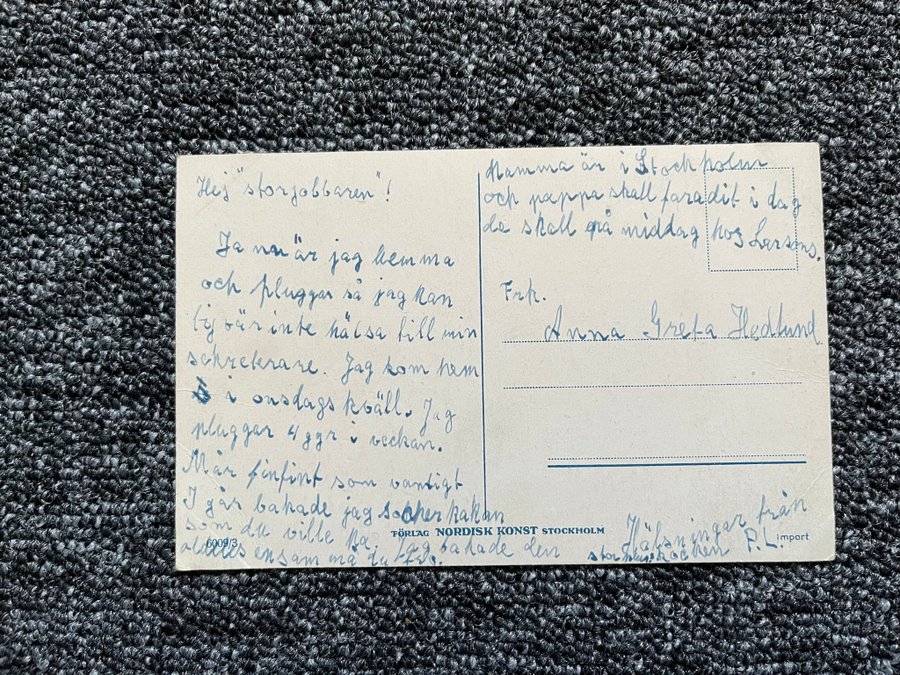 Hej "storjobbaren"!
Ja nu är jag hemma
och pluggar så jag kan
tyvär inte hälsa till min
sekreterare. Jag kom hem
i onsdags kväll. Jag
pluggar 4 ggr i veckan.
Mår finfint som vanligt
I går bakade jag sockerkakan
som du ville ha. Jag bakade den
alldeles ensam må du tro.
Mamma är i Stockholm
och pappa skall fara dit i dag
de skall på middag hos Larsons.
Frk.
Anna Greta Hedlund
Hälsningar från
P.L.
6009/3
FÖRLAG NORDISK KONST STOCKHOLM
Import